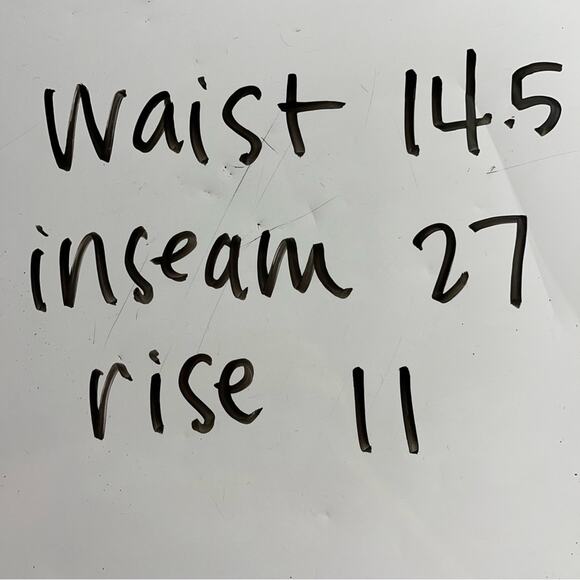 waist 14.5
inseam 27
rise 11